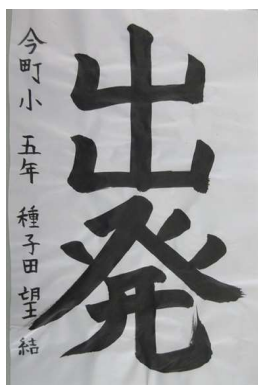 出発
今町小 五年 種子田望結